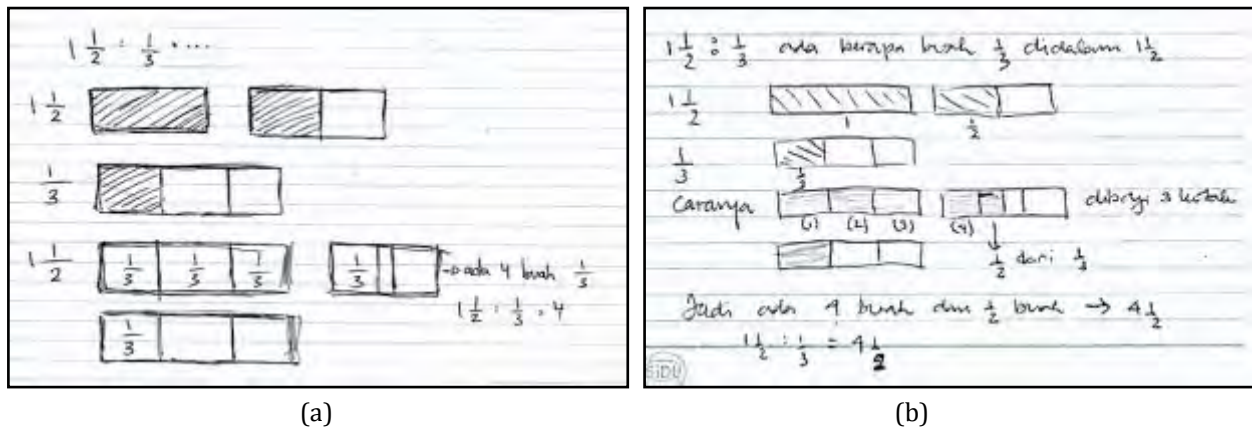 1 1/2 : 1/3 = ...
1 1/2
1/3
1 1/2 1/3 1/3 1/3 1/3 → ada 4 buah 1/3
1 1/2 : 1/3 = 4
1/3
(a)
1 1/2 : 1/3 ada berapa buah 1/3 didalam 1 1/2
1 1/2
1 1/2
1/3
1/3
Caranya dibagi 3 kotak
(1) (2) (3) (4)
1/2 dari 1/3
Jadi ada 4 buah dan 1/2 buah → 4 1/2
1 1/2 : 1/3 = 4 1/2
SIDU
(b)